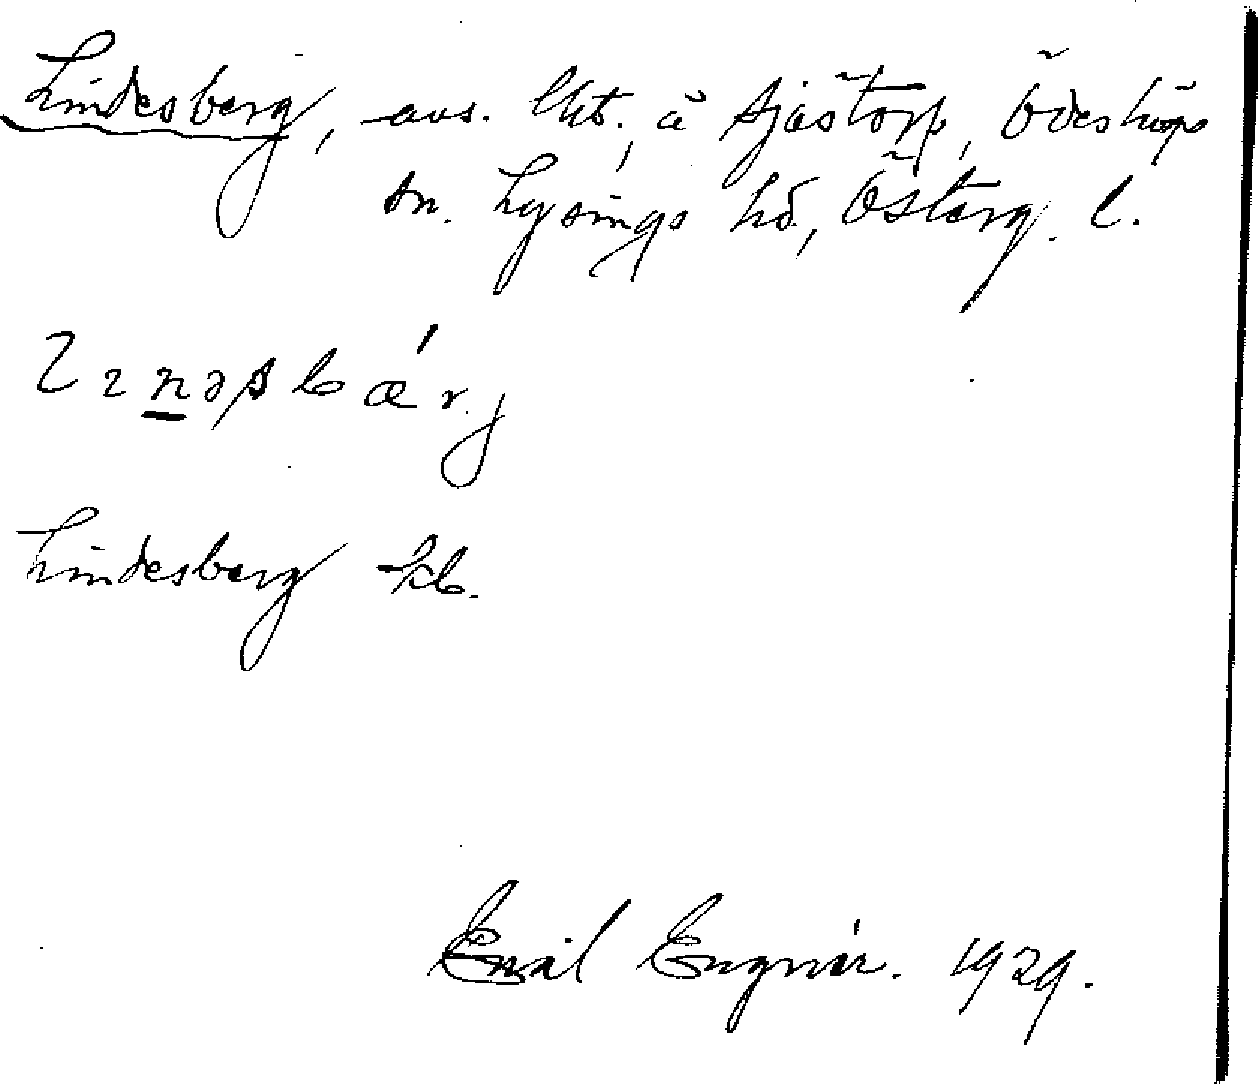 Lindesberg, avs. lht, å Sjöstorp, Ödeshögs
sn. Lysings hd, Österg. l.
lınəsbǽrj
Lindesberg kb.
Emil Engnér. 1929.